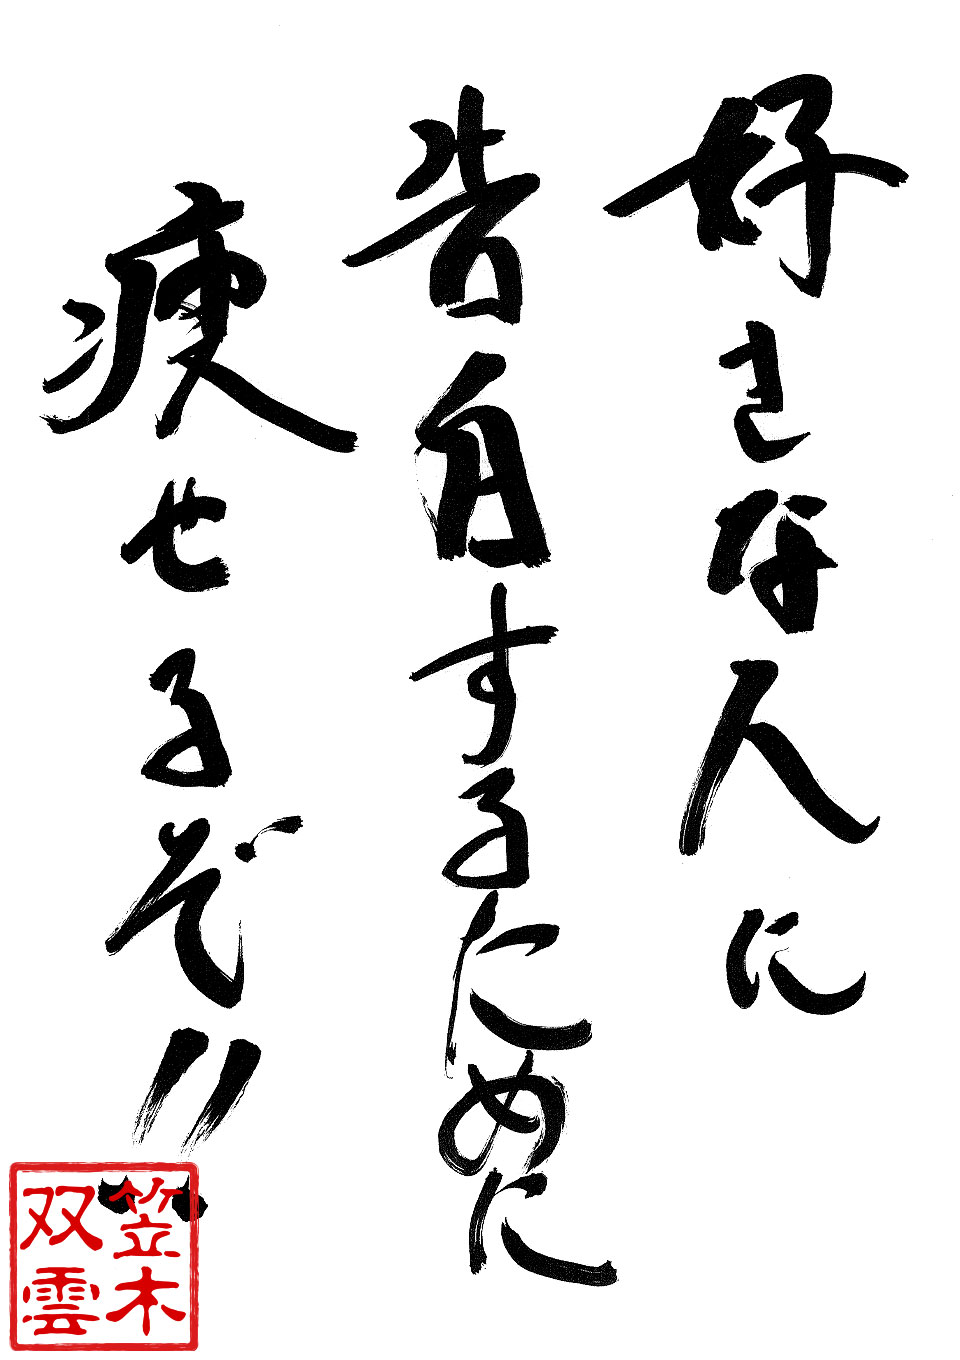 好きな人に
告白するために
痩せるぞ!!
笠木
双雲